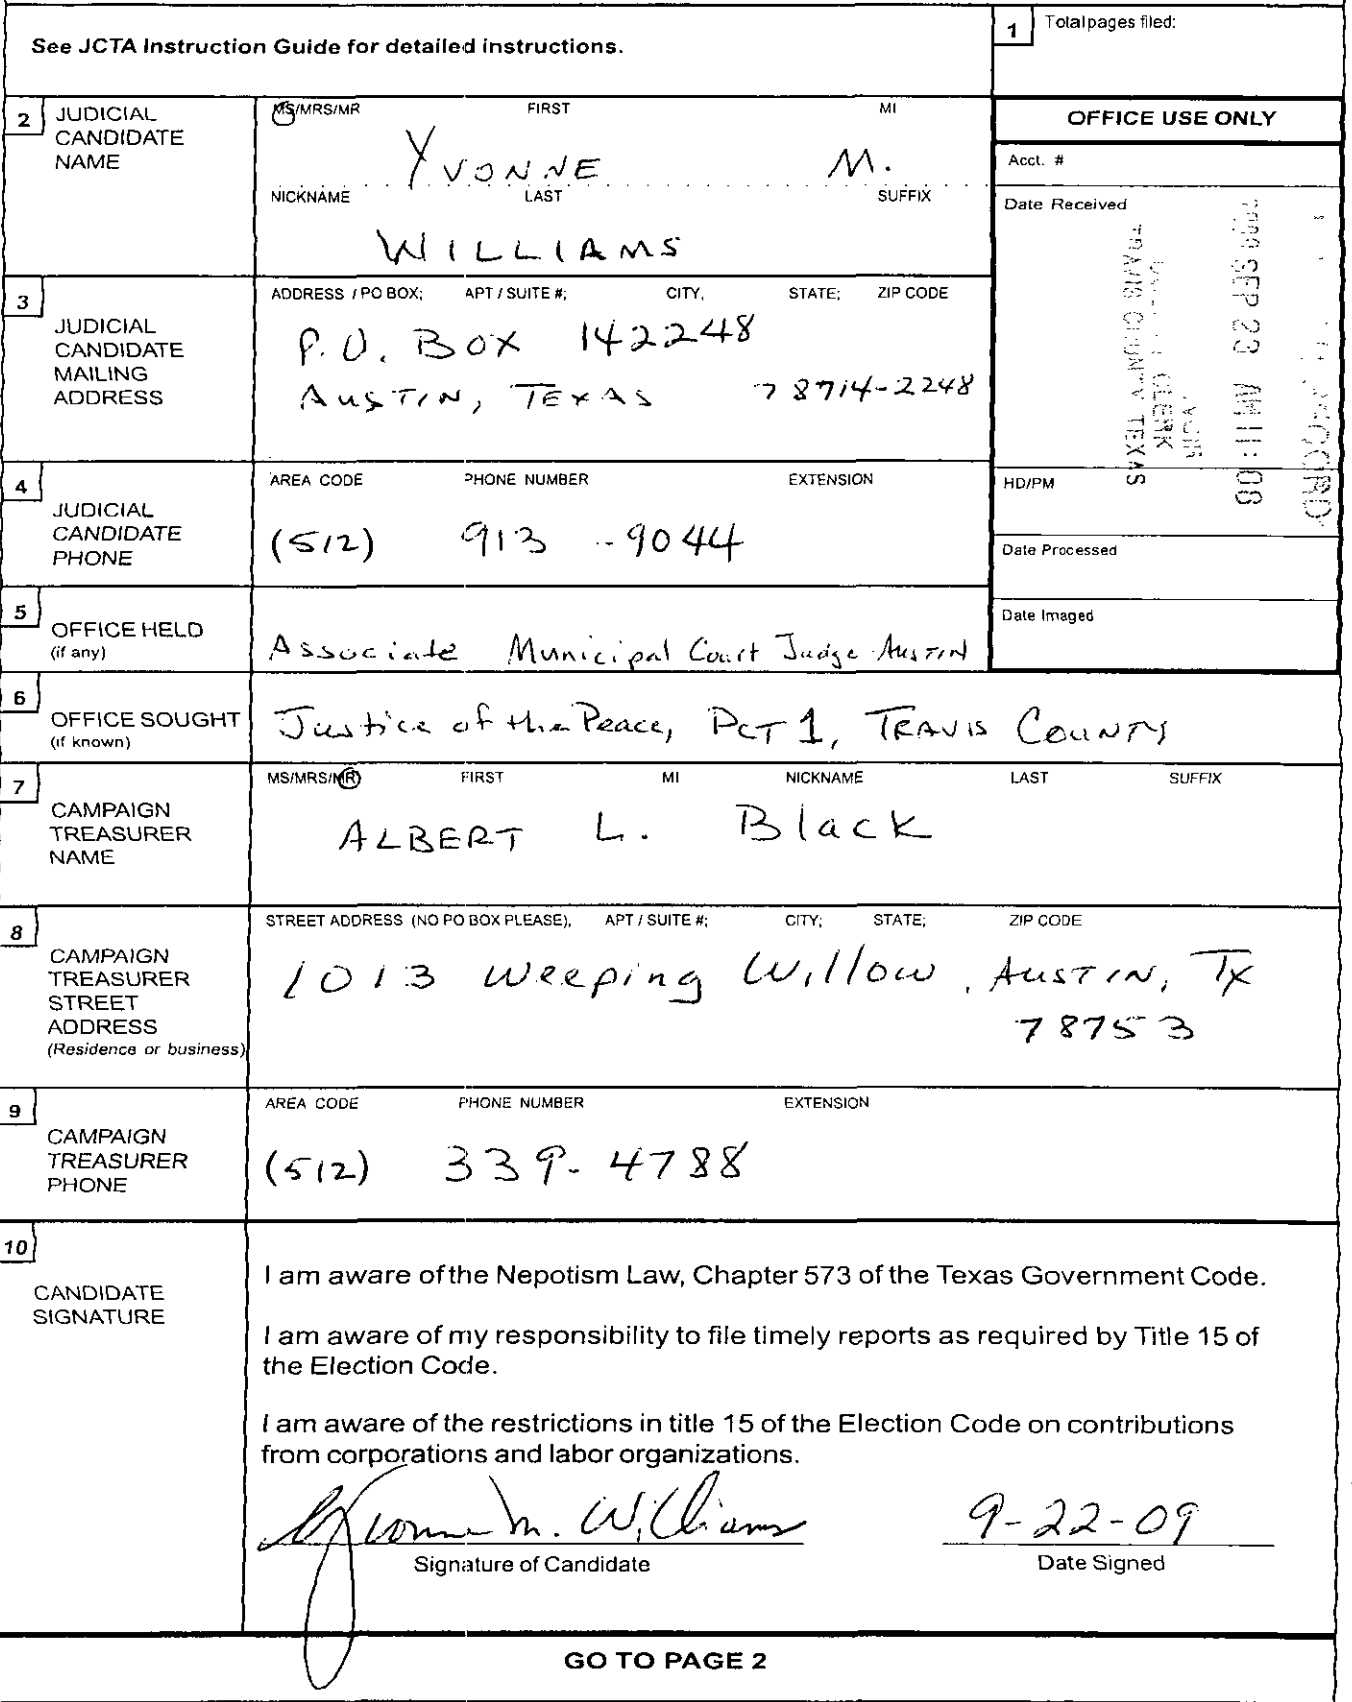 See JCTA Instruction Guide for detailed instructions.
1 Total pages filed:
2 JUDICIAL CANDIDATE NAME
MS/MRS/MR FIRST MI
YVONNE M.
NICKNAME LAST SUFFIX
WILLIAMS
OFFICE USE ONLY
Acct. #
Date Received
SEP 23 AM 11:08
CLERK
TRAVIS COUNTY TEXAS
HD/PM
Date Processed
Date Imaged
3 JUDICIAL CANDIDATE MAILING ADDRESS
ADDRESS / PO BOX; APT / SUITE #; CITY, STATE; ZIP CODE
P.O. BOX 142248
AUSTIN, TEXAS 78714-2248
4 JUDICIAL CANDIDATE PHONE
AREA CODE PHONE NUMBER EXTENSION
(512) 913 - 9044
5 OFFICE HELD
(if any)
Associate Municipal Court Judge Austin
6 OFFICE SOUGHT
(if known)
Justice of the Peace, PCT 1, TRAVIS COUNTY
7 CAMPAIGN TREASURER NAME
MS/MRS/MR FIRST MI NICKNAME LAST SUFFIX
ALBERT L. Black
8 CAMPAIGN TREASURER STREET ADDRESS
(Residence or business)
STREET ADDRESS (NO PO BOX PLEASE), APT / SUITE #; CITY; STATE; ZIP CODE
1013 Weeping Willow, AUSTIN, TX
78753
9 CAMPAIGN TREASURER PHONE
AREA CODE PHONE NUMBER EXTENSION
(512) 339-4788
10 CANDIDATE SIGNATURE
I am aware of the Nepotism Law, Chapter 573 of the Texas Government Code.
I am aware of my responsibility to file timely reports as required by Title 15 of
the Election Code.
I am aware of the restrictions in title 15 of the Election Code on contributions
from corporations and labor organizations.
Yvonne M. Williams 9-22-09
Signature of Candidate Date Signed
GO TO PAGE 2